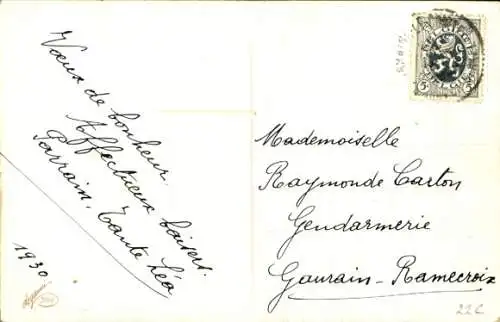 Vœux de bonheur.
Affectueux baisers.
Parrain, Tante Léa
1930
Mademoiselle
Raymonde Carton
Gendarmerie
Gaurain-Ramecroix
22C
BELGIQUE
5
5
BELGIË